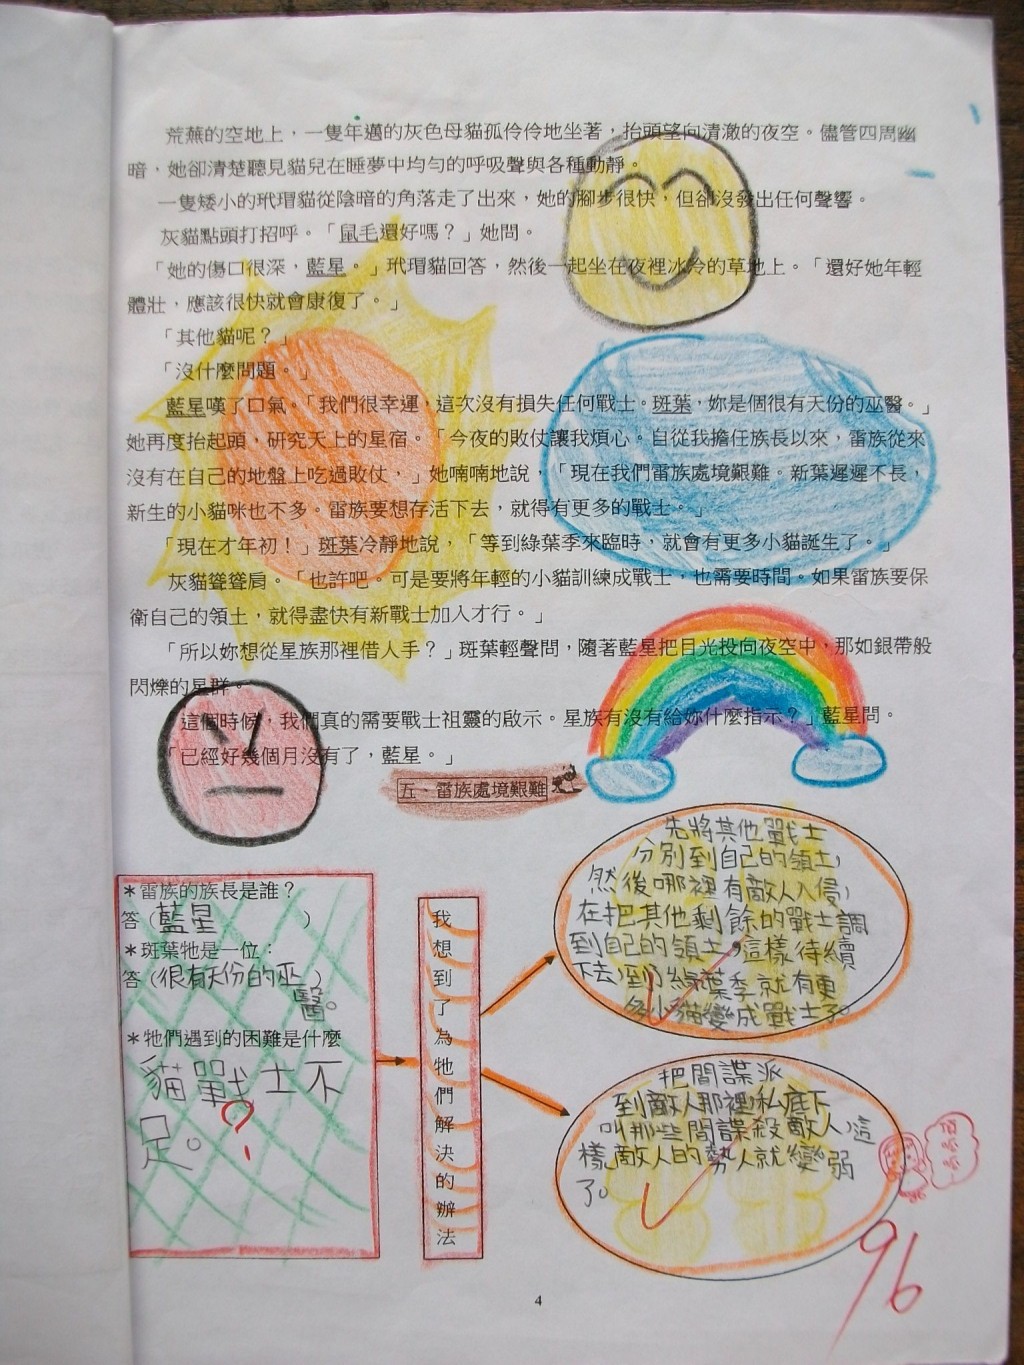 荒蕪的空地上，一隻年邁的灰色母貓孤伶伶地坐著，抬頭望向清澈的夜空。儘管四周幽
暗，她卻清楚聽見貓兒在睡夢中均勻的呼吸聲與各種動靜。
一隻矮小的玳瑁貓從陰暗的角落走了出來，她的腳步很快，但卻沒發出任何聲響。
灰貓點頭打招呼。「鼠毛還好嗎？」她問。
「她的傷口很深，藍星。」玳瑁貓回答，然後一起坐在夜裡冰冷的草地上。「還好她年輕
體壯，應該很快就會康復了。」
「其他貓呢？」
「沒什麼問題。」
藍星嘆了口氣。「我們很幸運，這次沒有損失任何戰士。斑葉，妳是個很有天份的巫醫。」
她再度抬起頭，研究天上的星宿。「今夜的敗仗讓我煩心。自從我擔任族長以來，雷族從來
沒有在自己的地盤上吃過敗仗，」她喃喃地說，「現在我們雷族處境艱難。新葉遲遲不長，
新生的小貓咪也不多。雷族要想存活下去，就得有更多的戰士。」
「現在才年初！」斑葉冷靜地說，「等到綠葉季來臨時，就會有更多小貓誕生了。」
灰貓聳聳肩。「也許吧。可是要將年輕的小貓訓練成戰士，也需要時間。如果雷族要保
衛自己的領土，就得盡快有新戰士加入才行。」
「所以妳想從星族那裡借人手？」斑葉輕聲問，隨著藍星把目光投向夜空中，那如銀帶般
閃爍的星群。
「這個時候，我們真的需要戰士祖靈的啟示。星族有沒有給妳什麼指示？」藍星問。
「已經好幾個月沒有了，藍星。」
五、雷族處境艱難
＊雷族的族長是誰？
答（藍星）
＊斑葉牠是一位：
答（很有天份的巫
醫。）
＊牠們遇到的困難是什麼
貓戰士不
足。
？
我想到了為牠們解決的辦法
先將其他戰士
分別到自己的領土，
然後哪裡有敵人入侵，
在把其他剩餘的戰士調
到自己的領土，這樣待續
下去，到綠葉季就有更
多小貓變成戰士了。
把間諜派
到敵人那裡，私底下
叫那些間諜殺敵人，這
樣敵人的勢人就變弱
了。
96
4